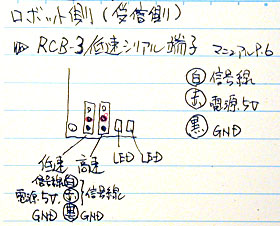 ロボット側(受信側)
⇨ RCB-3 低速シリアル端子 マニュアルP.6
白 信号線
赤 電源5V
黒 GND
低速 高速 LED LED
信号線 白 信号線
電源5V 赤
GND 黒 GND